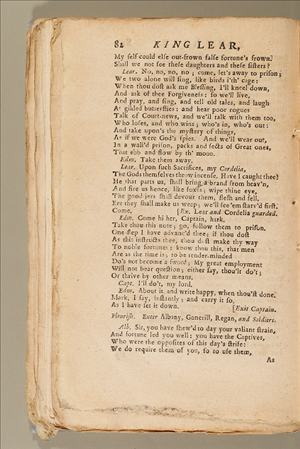 82 KING LEAR,
My self could else out-frown false fortune's frown.
Shall we not see these daughters and these sisters?
Lear. No, no, no, no; come, let's away to prison;
We two alone will sing, like birds i'th' cage:
When thou dost ask me Blessing, I'll kneel down,
And ask of thee Forgiveness: so we'll live,
And pray, and sing, and tell old tales, and laugh
At gilded butterflies: and hear poor rogues
Talk of Court-news, and we'll talk with them too,
Who loses, and who wins; who's in, who's out:
And take upon's the mystery of things,
As if we were God's spies. And we'll wear out,
In a wall'd prison, packs and sects of Great ones,
That ebb and flow by th' moon.
Edm. Take them away.
Lear. Upon such Sacrifices, my Cordelia,
The Gods themselves throw incense. Have I caught thee?
He that parts us, shall bring a brand from heav'n,
And fire us hence, like foxes; wipe thine eye,
The good-jers shall devour them, flesh and fell,
Ere they shall make us weep; we'll see 'em starv'd first.
Come, [Ex. Lear and Cordelia guarded.
Edm. Come hither, Captain, hark.
Take thou this note; go, follow them to prison.
One step I have advanc'd thee; if thou dost
As this instructs thee, thou dost make thy way
To noble fortunes: know thou this, that men
Are as the time is; to be tender-minded
Do's not become a sword; My great employment
Will not bear question; either say, thou'lt do't;
Or thrive by other means.
Capt. I'll do't, my lord.
Edm. About it, and write happy, when thou'st done.
Mark, I say, instantly; and carry it so,
As I have set it down. [Exit Captain.
Flourish. Enter Albany, Gonerill, Regan, and Soldiers.
Alb. Sir, you have shew'd to day your valiant strain,
And fortune led you well: you have the Captives,
Who were the opposites of this day's strife:
We do require them of you, so to use them,
As